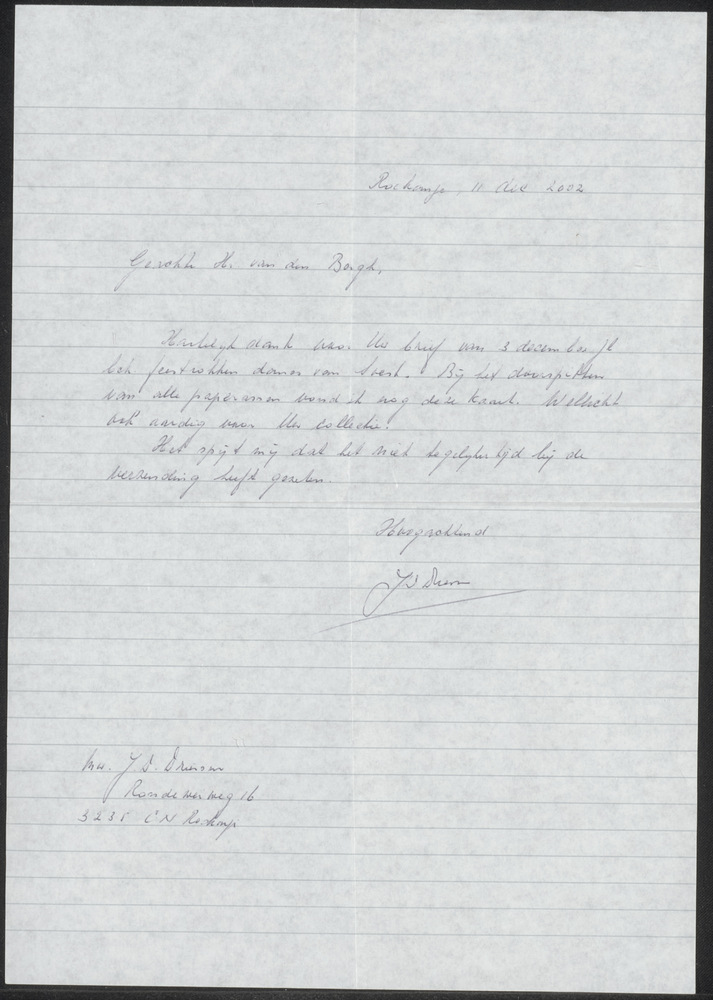 Rockanje, 11 dec 2002
Geachte Hr. van den Bergh,
Hartelijk dank voor Uw brief van 3 december jl
van Soest. Bij het doorspitten
van alle paperassen vond ik nog deze kaart. Wellicht
ook aardig voor Uw collectie.
Het spijt mij dat het niet tegelijkertijd bij de
verzending heeft gezeten.
Hoogachtend
J D Driessen
Mw. J D. Driessen
weg 16
CN Rockanje